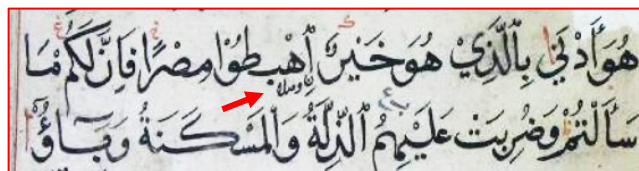 هُوَ أَدْنَىٰ بِالَّذِي هُوَ خَيْرٌ اَهْبِطُوا مِصْرًا فَإِنَّ لَكُمْ مَا
سَأَلْتُمْ وَضُرِبَتْ عَلَيْهِمُ الذِّلَّةُ وَالْمَسْكَنَةُ وَبَآؤُ